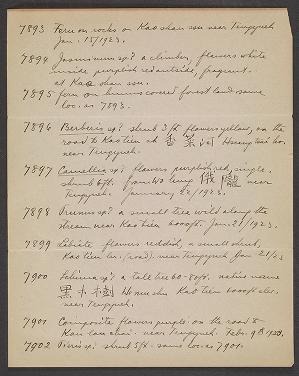 7893 Fern on rocks on Kao shan ssu near Tengyueh
Jan. 15/1923.
7894 Jasminum sp? a climber, flowers white
inside purplish red outside, fragrant.
at Kao shan ssu.
7895 fern on humus covered forest land same
loc. as 7893.
7896 Berberis sp? shrub 3ft flowers yellow, on the
road to Kao tien at 香茶河 Hsiang tsai ho,
near Tengyueh.
7897 Camellia sp? flowers purplish red, single,
shrub 6ft. from lung near
Tengyueh. January 22/1923.
7898 Prunus sp? a small tree wild along the
stream near Kao tien 6000ft. Jan. 21/1923.
7899 Labiate flowers reddish, a small shrub,
Kao tien (road) near Tengyueh Jan 21/23
7900 Schima sp? a tall tree 60-80ft. native name
黑木樹 He mu shu Kao tien 6000ft elev.
near Tengyueh.
7901 Composite flowers purple on the road to
Kan lan chai. near Tengyueh. Febr. 9th 1923.
7902 Pieris sp? shrub 5ft. same loc. as 7901.